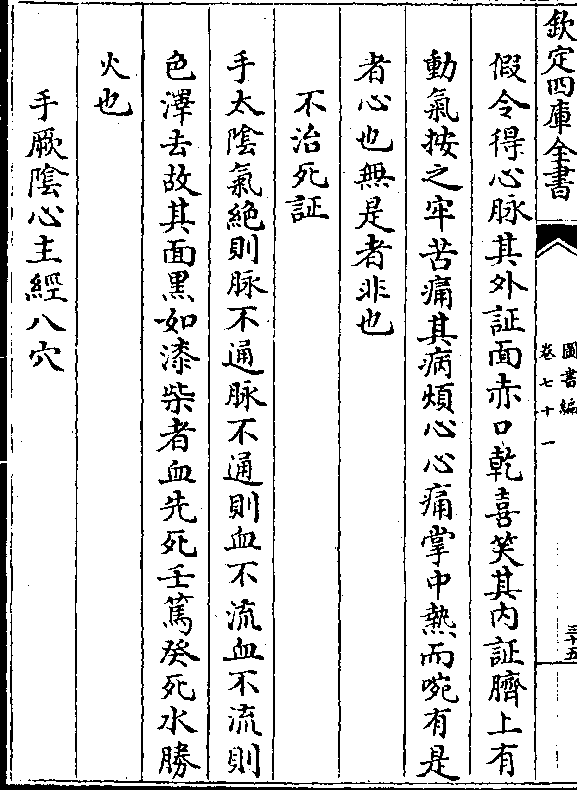 欽定四庫全書
圖書編
卷七十一
三十五
假令得心脉其外証面赤口乾喜笑其内証臍上有
動氣按之牢苦痛其病煩心心痛掌中熱而啘有是
者心也無是者非也
不治死証
手太陰氣絶則脉不通脉不通則血不流血不流則
色澤去故其面黑如漆柴者血先死壬篤癸死水勝
火也
手厥陰心主經八穴